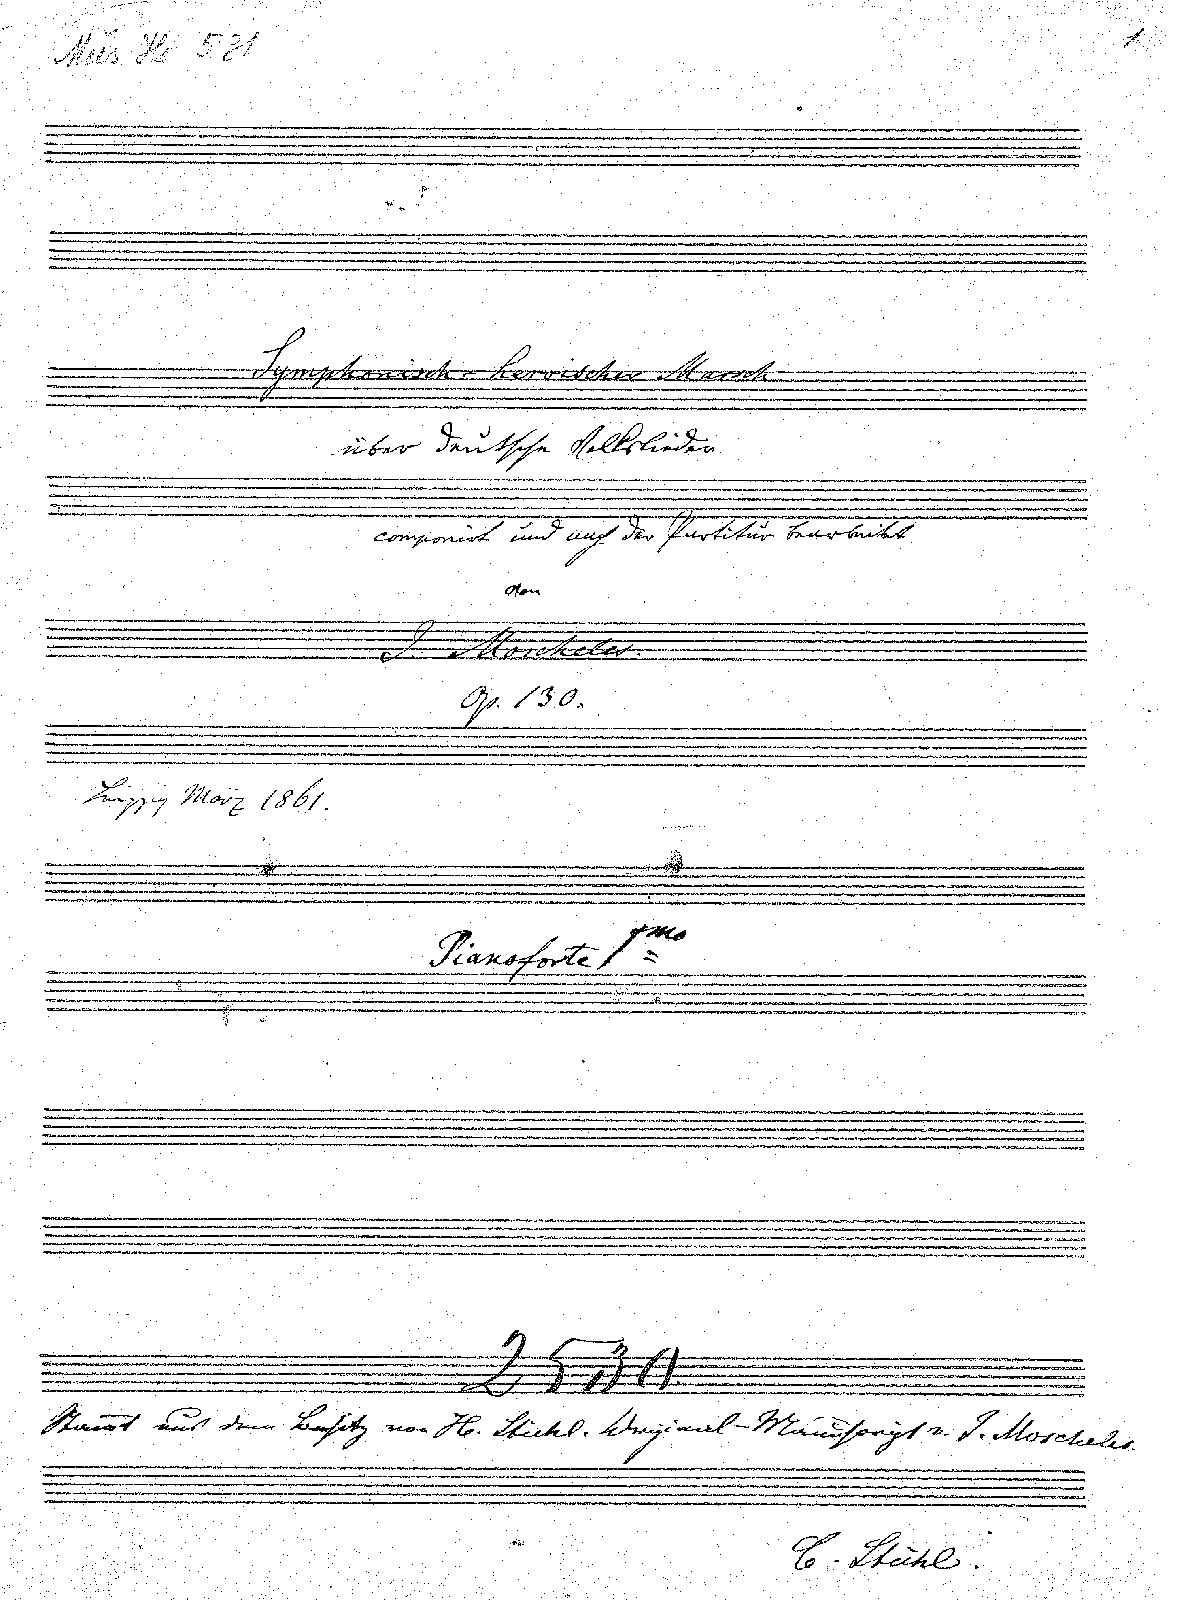 Mus. Hs 521
1
Symphonisch-heroischer Marsch
über deutsche Volkslieder
componirt und auf der Partitur bearbeitet
von
J. Moscheles.
Op. 130.
Leipzig März 1861.
Pianoforte 1mo
2530
Stammt aus dem Besitz von H. Stiehl. Original-Manuscript v. J. Moscheles.
C. Stiehl.